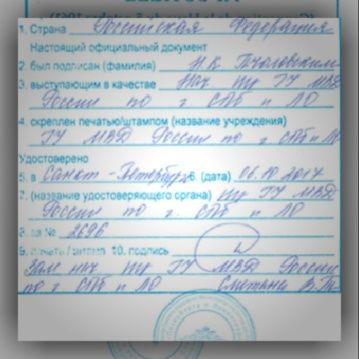 1. Страна Российская Федерация
Настоящий официальный документ
2. был подписан (фамилия) Н.В.
3. выступающим в качестве Нач. ГУ МВД
России по г СПб и ЛО
4. скреплен печатью/штампом (название учреждения)
ГУ МВД России по г СПб и ЛО
Удостоверено
5. в Санкт-Петербург 6. (дата) 06.10.2017
7. (название удостоверяющего органа) ГУ МВД
России по г. СПб и ЛО
8. за № 2696
9. печать / штамп 10. подпись
Зам нач ГУ МВД России
по г СПб и ЛО Сметана В.Т.